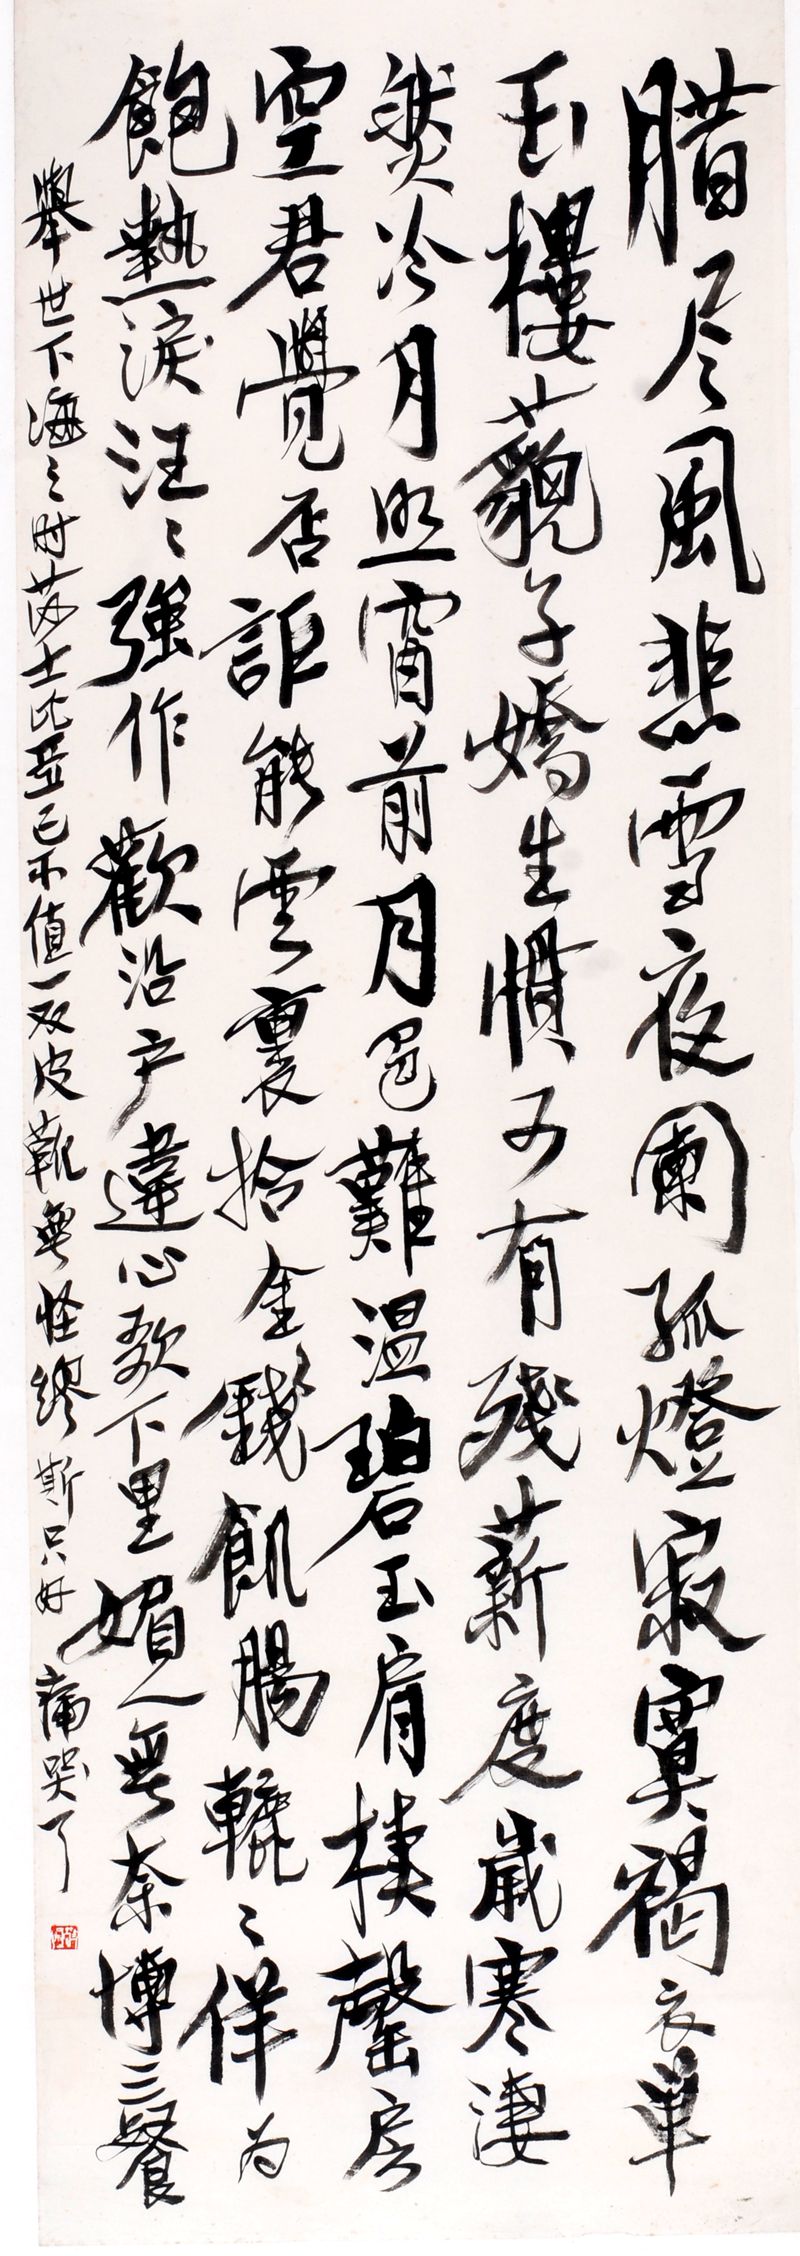 腊尽風悲雪夜闌孤燈寂寞褐衣單
玉樓藐子嬌生慣可有殘薪度歲寒淒
然冷月照窗前月色難温碧玉肩棲罄房
空君覺否詎能雲裏拾金錢飢腸轆〻佯為
飽熱淚汪〻強作歡沿户違心歌下里媚人無奈博三餐
舉世下海之时莎士比亞已不值一双皮靴無怪繆斯只好痛哭了